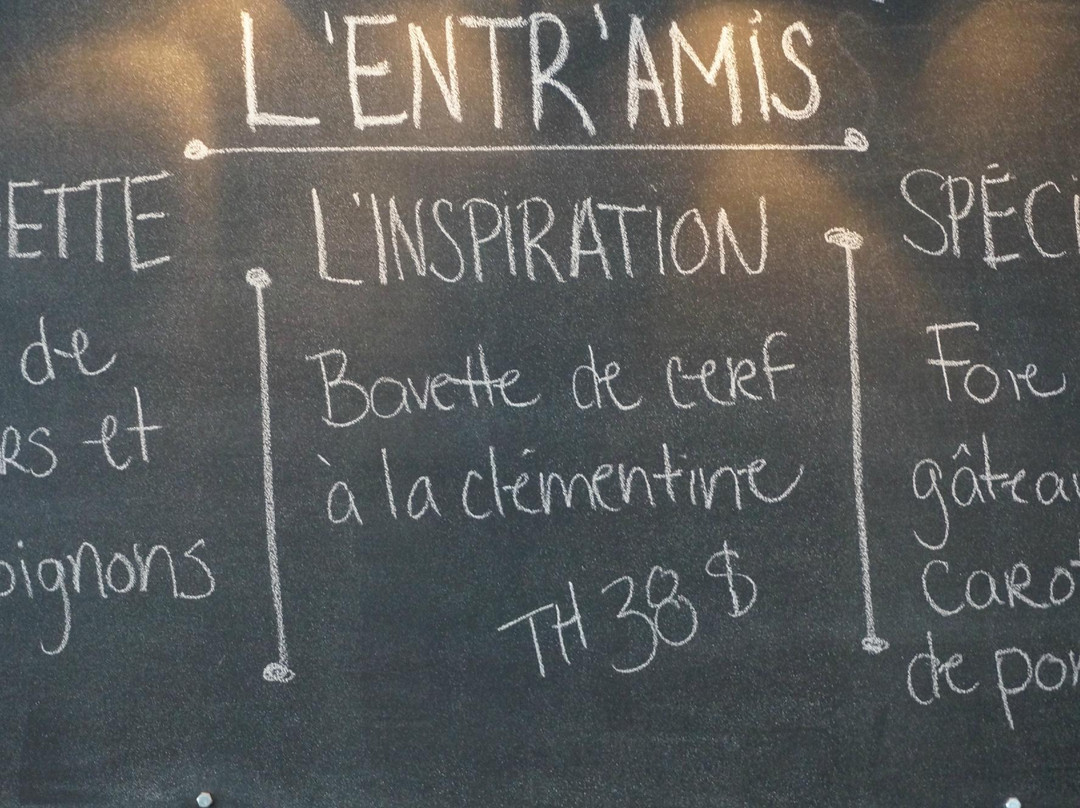 L'ENTR'AMIS
ETTE
de
RS et
pignons
L'INSPIRATION
Bavette de cerf
à la clémentine
TH 38 $
SPÉCI
Foie
gâteau
CAROT
de pom